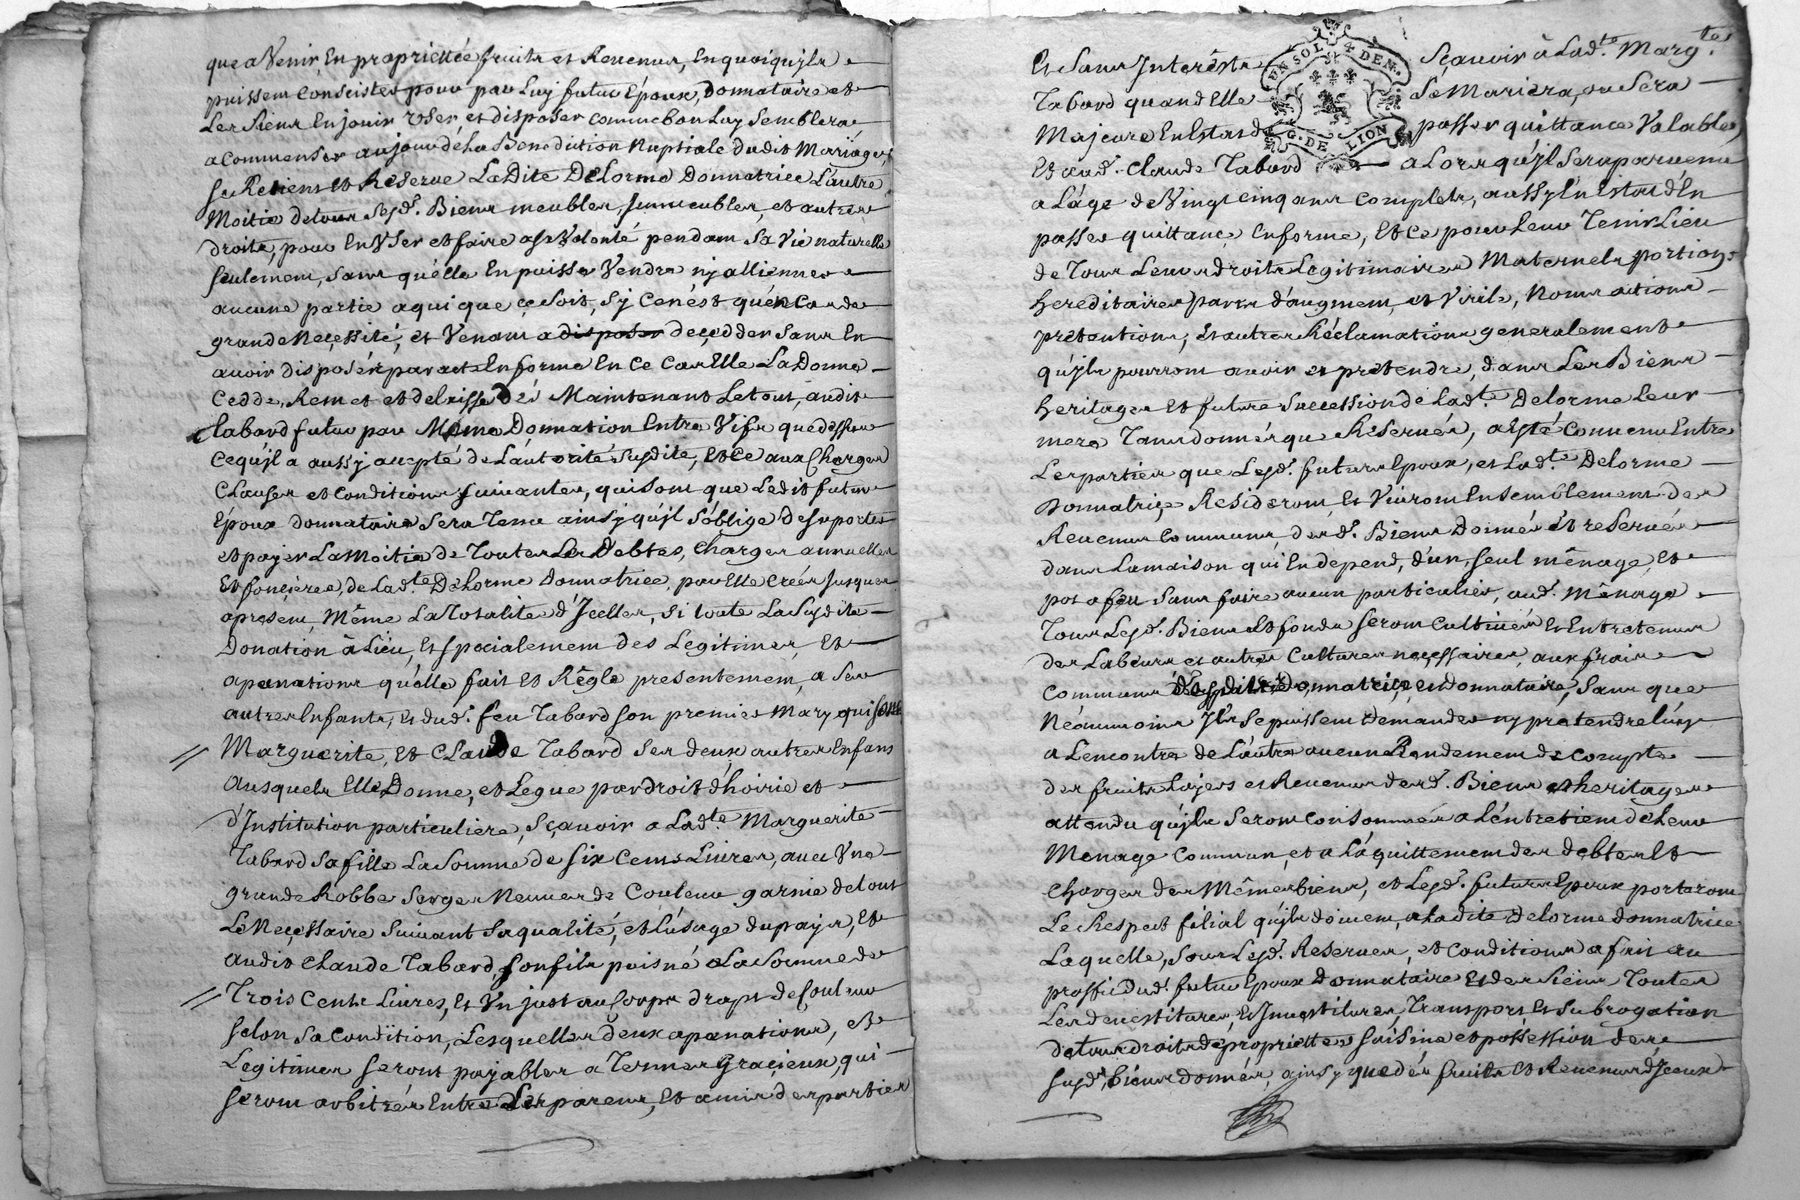 que a Venir, En proprietteé fruits et Revenus, En quoiquijls
puissent Consister pour par Luy futur Epoux, Donnataire et
Les Siens En jouir user et disposer comme bon Luy Semblera
a Commenser aujour dela Benediction Nuptiale dudit Mariage,
se Retient et Reserve Ladite Delorme Donnatrice L'autre
Moitié detous Sesd.s Biens meubles, jmmeubles, et autres
droits, pour En User et faire asa Volonté pendant Sa Vie naturelle
seulement, sans quélle En puisse Vendre ny allienner
aucune partie aqui que çe Soit, sy Cenést quén Cas de
grande Neçessité, et Venant a disposer deçedder Sans En
avoir disposér par acte En forme En Ce Cas Elle La Donne
Cedde, Remet et delaisse dés Maintenant Letout, audit
tabard futur par Même Donnation Entre Vifs que dessus
Cequjl a aussy accepté de Láutorité Susdite, Et Ce aux Charges
Clauses et Conditions Suivantes, qui sont que Ledit futur
Epoux donnataire Sera Tenu ainsy qu'jl S'óblige de suporter
et payer La Moitie de Toutes Les Debtes, Charges annuelles
Et fonçieres, de Lad.te Delorme Donnatrice, par Elle Creés Jusques
apresent, Même La Totalite d'Jcelles, Si toute La Susdite
Donation à Lieu, Et spécialement des Legitimes, Et
apanations qu'elle fait et Règle presentement, a Ses
autres Enfants, Et dud.t feu Tabard son premier Mary qui sont
Marguerite, Et Claude Tabard Ses deux autres Enfans
Ausquels Elle Donne, et Legue par droit d'hoirie et
d'Institution particuliere, Sçavoir a Lad.te Marguerite
Tabard Sa fille La Somme de Six Cents Livres, avec Une
grande Robbe Serge Neuve de Couleur garnie detout
Le Neçessaire Suivant Sa qualité, et L'usage du pays, Et
audit Claude Tabard, son fils puisné a La Somme de
Trois Cents Livres, Et Un just au Corps drapt de Couleur
selon Sa Condition, Lesquelles deux apanations, et
Legitimes seront payables a Termes Graçieux, qui
seront arbitrés Entre Les parens, Et amis des parties
Et Sans Interêsts Sçavoir à Lad.te Marg.te
Tabard quand Elle Se Mariera, ou Sera
Majeure En Estat de passer quittance Valable,
Et aud.t Claude Tabard a Lors qu'jl Sera parvenu
a L'áge de Vingt cinq ans Complets, aussy En Estat d'En
passer quittançe En forme, Et Ce pour Leur Tenir Lieu
de Tous Leurs droits Legitimaires Maternels portions
hereditaires, parts d'augment, et Virile, Noms actions
pretentions, Et autres Réclamations generalement
qu'jls pourront avoir et pretendre, dans Les Biens
heritages Et future Succession de Lad.te Delorme Leur
mere Tant donnés que Reservés, a Esté Convenu Entre
Les parties que Lesd.s futurs Epoux, et Lad.te Delorme
Donnatriçe Resideront, Et Vivront Ensemblement des
Revenus Communs, desd.s Biens Donnés et reservés
dans La maison qui En depend, d'un, seul mênage, Et
pot a feu Sans faire aucun particulier, aud.t Mênage
Tous Lesd.s Biens et fonds seront Cultivés Et Entretenus
des Labeurs et autres Cultures neçessaires, aux frais
Communs desdits Donnatriçe, et donnataire, Sans que
Néanmoins Jls Se puissent demander ny pretendre L'un
a Lencontre de L'autre aucun Rendement de Compte
des fruits Loyers et Revenus desd.s Biens et heritages
attendu qu'jls Seront Consommés a L'éntretient de Leur
Menage Commun, et a L'áquittement des debtes Et
Charges des Mêmes biens, et Lesd.s futurs Epoux porteront
Le Respect filial qu'jls doivent, a Ladite Delorme donnatrice
Laquelle, sous Lesd.s Reserves, et Conditions a fait au
proffit dud.t futur Epoux Donnataire Et des Siens Toutes
Les devestitures, Et Jnvestitures, Transport Et Subrogation
detous droits de propriettes saisine et possession des
Susd.s biens donnés, ainsy que dés fruits Et Revenus d'Jceux
UN SOL 4 DEN.
G. DE LION